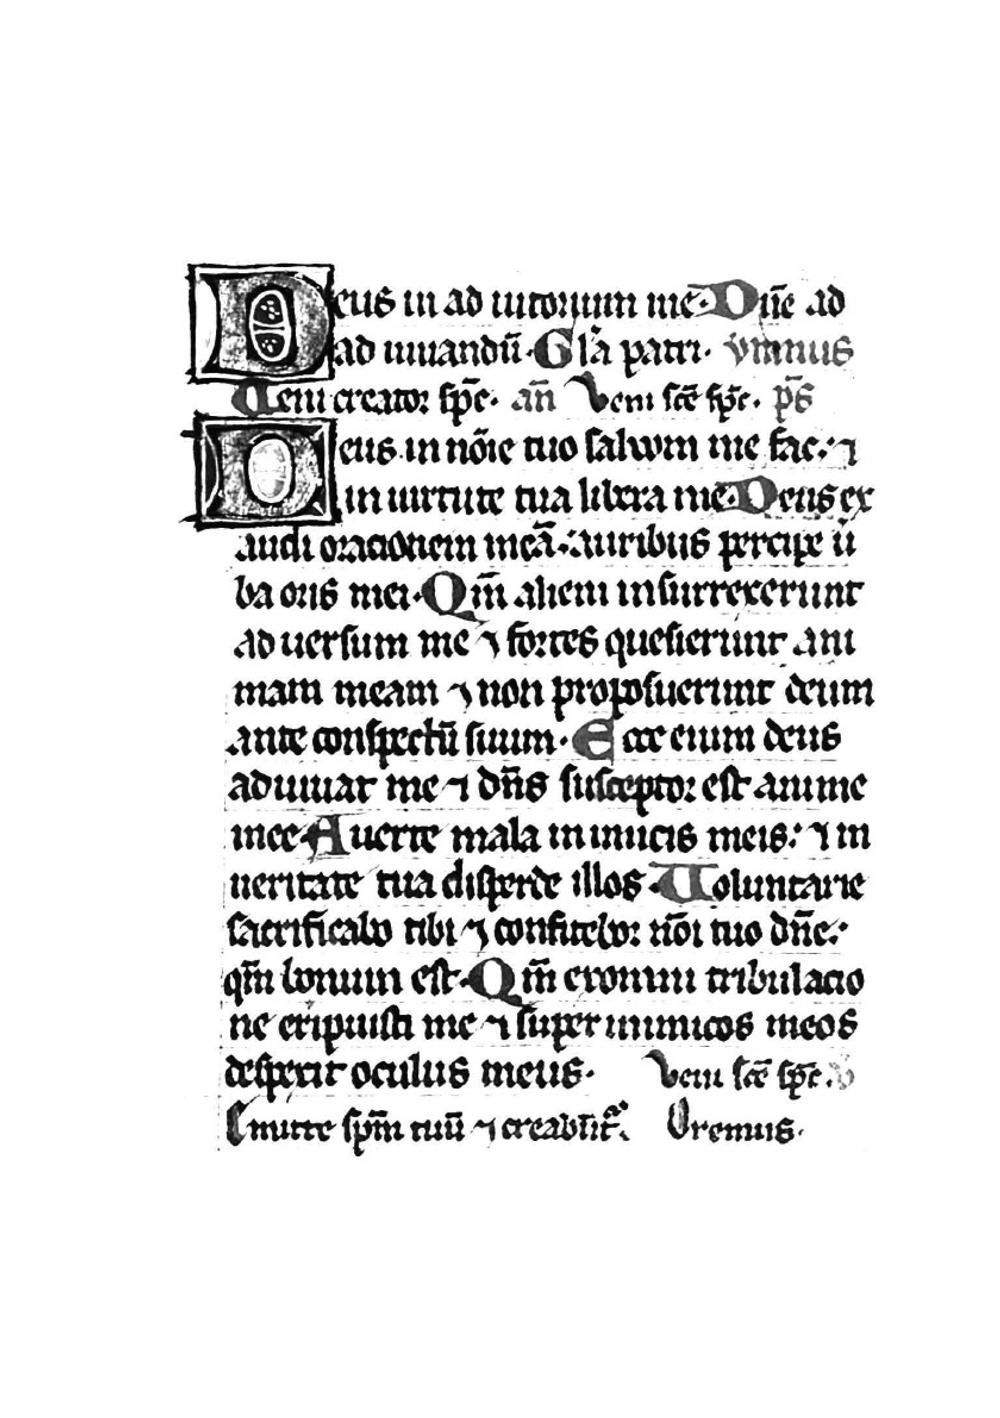 Deus in ad iutorium me· Dn̄e ad
ad iuuandū· Gl̄a patri· ymnus
Ueni creator sp̄c· an̄ Veni sc̄e sp̄c· p̄s
Deus in nōie tuo saluum me fac: ⁊
in uirtute tua libera me· Deus ex
audi orationem meā: auribus percipe u̅
ba oris mei· Qm̄ alieni insurrexerunt
ad uersum me ⁊ fortes quesierunt ani
mam meam ⁊ non proposuerunt deum
ante conspectū suum· Ecce enim deus
adiuuat me ⁊ dn̄s susceptor est anime
mee· Auerte mala inimicis meis: ⁊ in
ueritate tua disperde illos· Uoluntarie
sacrificabo tibi ⁊ confitebor nōi tuo dn̄e:
qm̄ bonum est· Qm̄ exomni tribulacio
ne eripuisti me ⁊ super inimicos meos
despexit oculus meus· Veni sc̄e sp̄c· v
Emitte sp̄m tuū ⁊ creabūt᷑ Oremus·